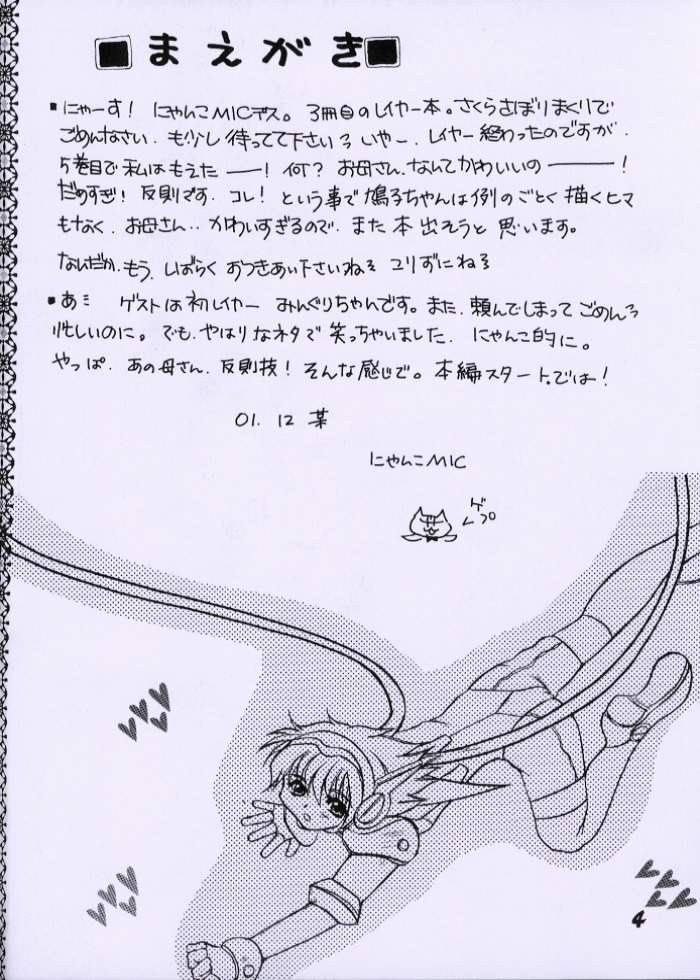 まえがき
▪にゃーす! にゃんこMICデス。3冊目のレイヤー本。さくらさぼりまくりで
ごめんなさい. も少し待ってて下さいぅ いやー. レイヤー終わったのですが.
5巻目で私はもえたー! 何? お母さん.なんてかわいいのー!
だめすぎ! 反則です. コレ! という事で鳩子ちゃんは例のごとく描くヒマ
もなく. お母さん‥かわいすぎるので. また本出そうと思います。
なんだか.もう.しばらくおつきあい下さいね コリずにね
▪あミ ゲストは初レイヤーみんぐりちゃんです。また.頼んでしまってごめん
忙しいのに。でも.やはりなネタで笑っちゃいました. にゃんこ的に。
やっぱ. あの母さん.反則技! そんな感じで。本編スタート。では!
01. 12 某
にゃんこMIC
ゲプ
4